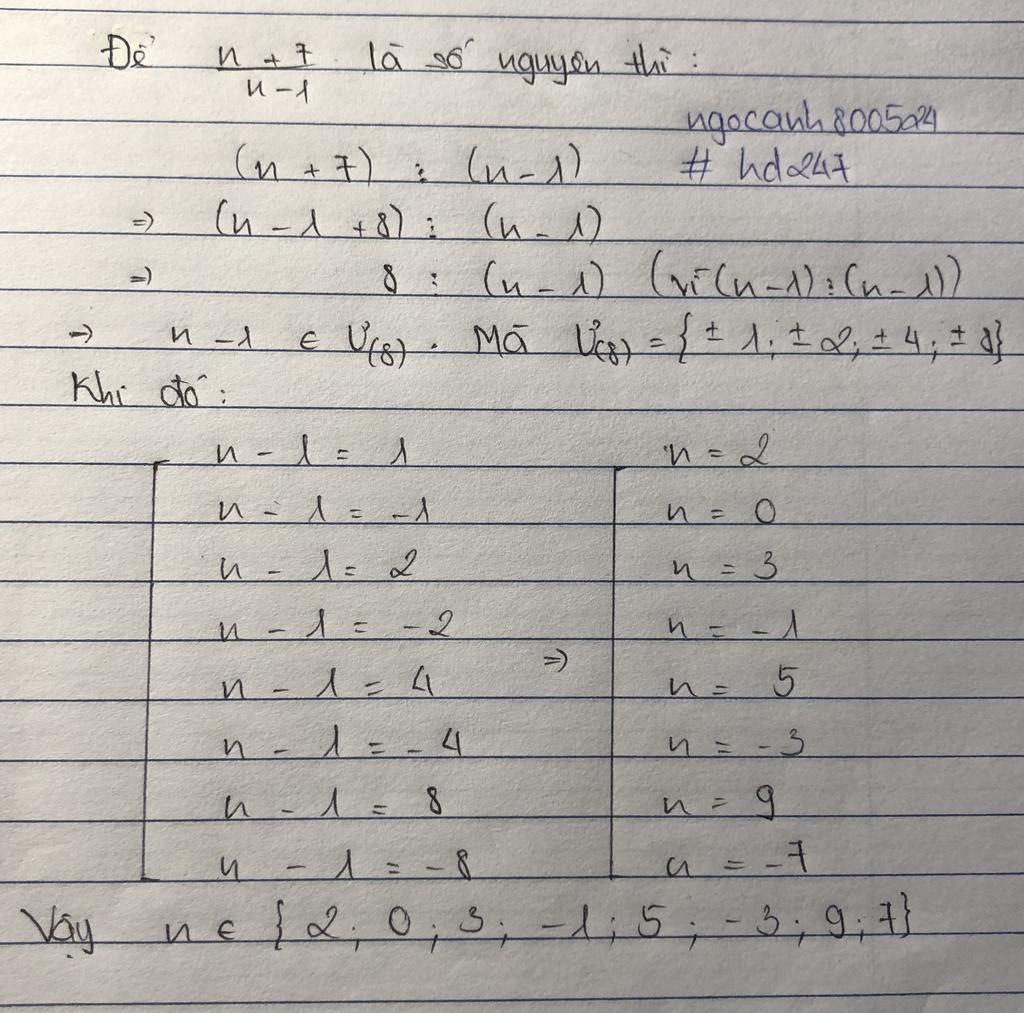 Để n + 7 / n - 1 là số nguyên thì :
ngocanh8005a24
# hd247
(n + 7) ⋮ (n - 1)
=> (n - 1 + 8) ⋮ (n - 1)
=> 8 ⋮ (n - 1) (vì (n - 1) ⋮ (n - 1))
=> n - 1 ∈ Ư(8) . Mà Ư(8) = {± 1; ± 2; ± 4; ± 8}
Khi đó :
n - 1 = 1 n = 2
n - 1 = -1 n = 0
n - 1 = 2 n = 3
n - 1 = -2 n = -1
=>
n - 1 = 4 n = 5
n - 1 = -4 n = -3
n - 1 = 8 n = 9
n - 1 = -8 n = -7
Vậy n ∈ {2; 0; 3; -1; 5; -3; 9; 7}